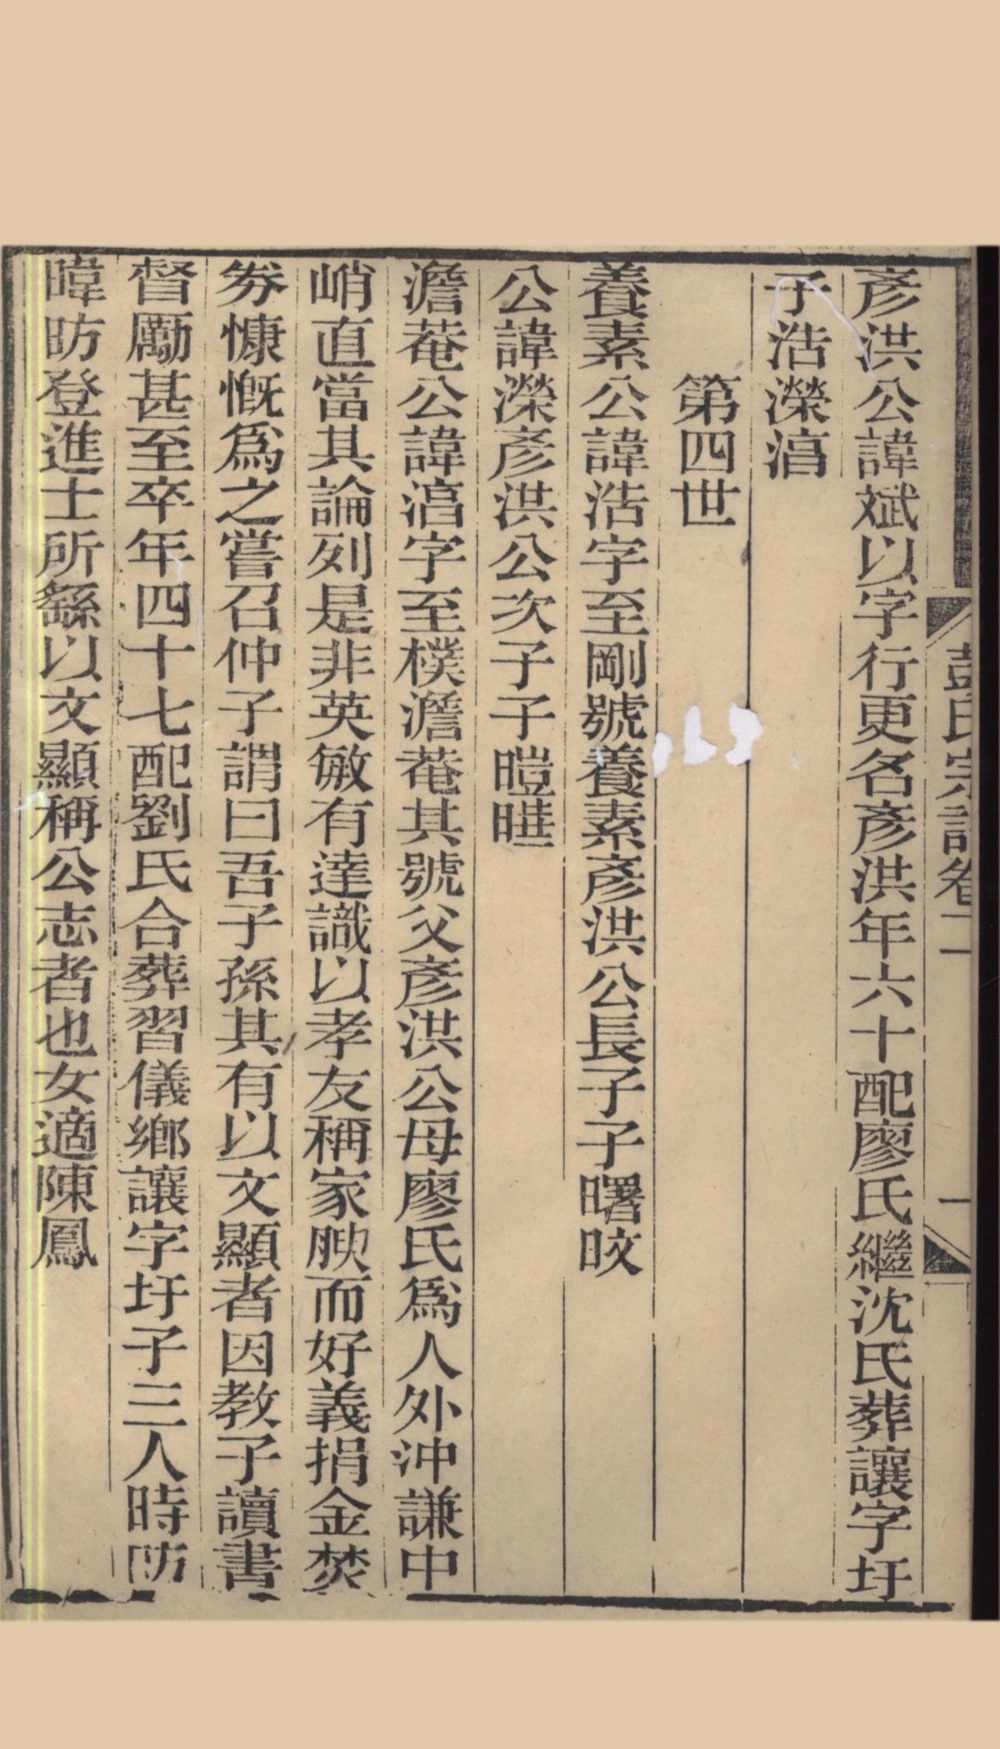 彭氏宗譜卷二
一
彥洪公諱斌以字行更名彥洪年六十配廖氏繼沈氏葬讓字圩
子浩濴滈
第四世
養素公諱浩字至剛號養素彥洪公長子子曙咬
公諱濴彥洪公次子子暟暀
澹菴公諱滈字至樸澹菴其號父彥洪公母廖氏爲人外沖謙中
峭直當其論列是非英敏有達識以孝友稱家腴而好義捐金焚
券慷慨爲之嘗召仲子謂曰吾子孫其有以文顯者因教子讀書
督勵甚至卒年四十七配劉氏合葬習儀鄉讓字圩子三人時昉
暐昉登進士所繇以文顯稱公志者也女適陳鳳